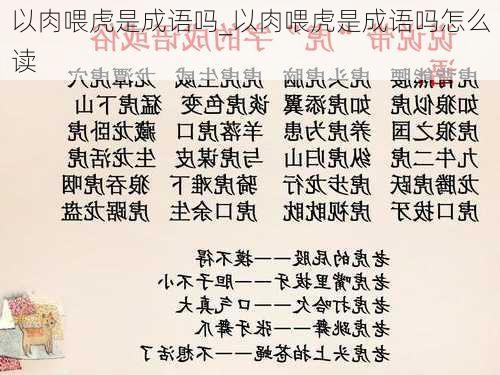 以肉喂虎是成语吗_以肉喂虎是成语吗怎么
读
说说带“虎”字的成语或俗
语
龙潭虎穴 虎虎生威 虎头虎脑 虎背熊腰
猛虎下山 谈虎色变 如虎添翼 如狼似虎
藏龙卧虎 羊落虎口 养虎为患 虎狼之国
生龙活虎 与虎谋皮 纵虎归山 九牛二虎
狼吞虎咽 骑虎难下 龙行虎步 龙腾虎跃
虎踞龙盘 虎口余生 虎视眈眈 虎口拔牙
老虎的屁股———摸不得
老虎嘴里拔牙——胆子不小
老虎打哈欠———口气真大
老虎跳舞———张牙舞爪
老虎头上拍苍蝇———不想活了